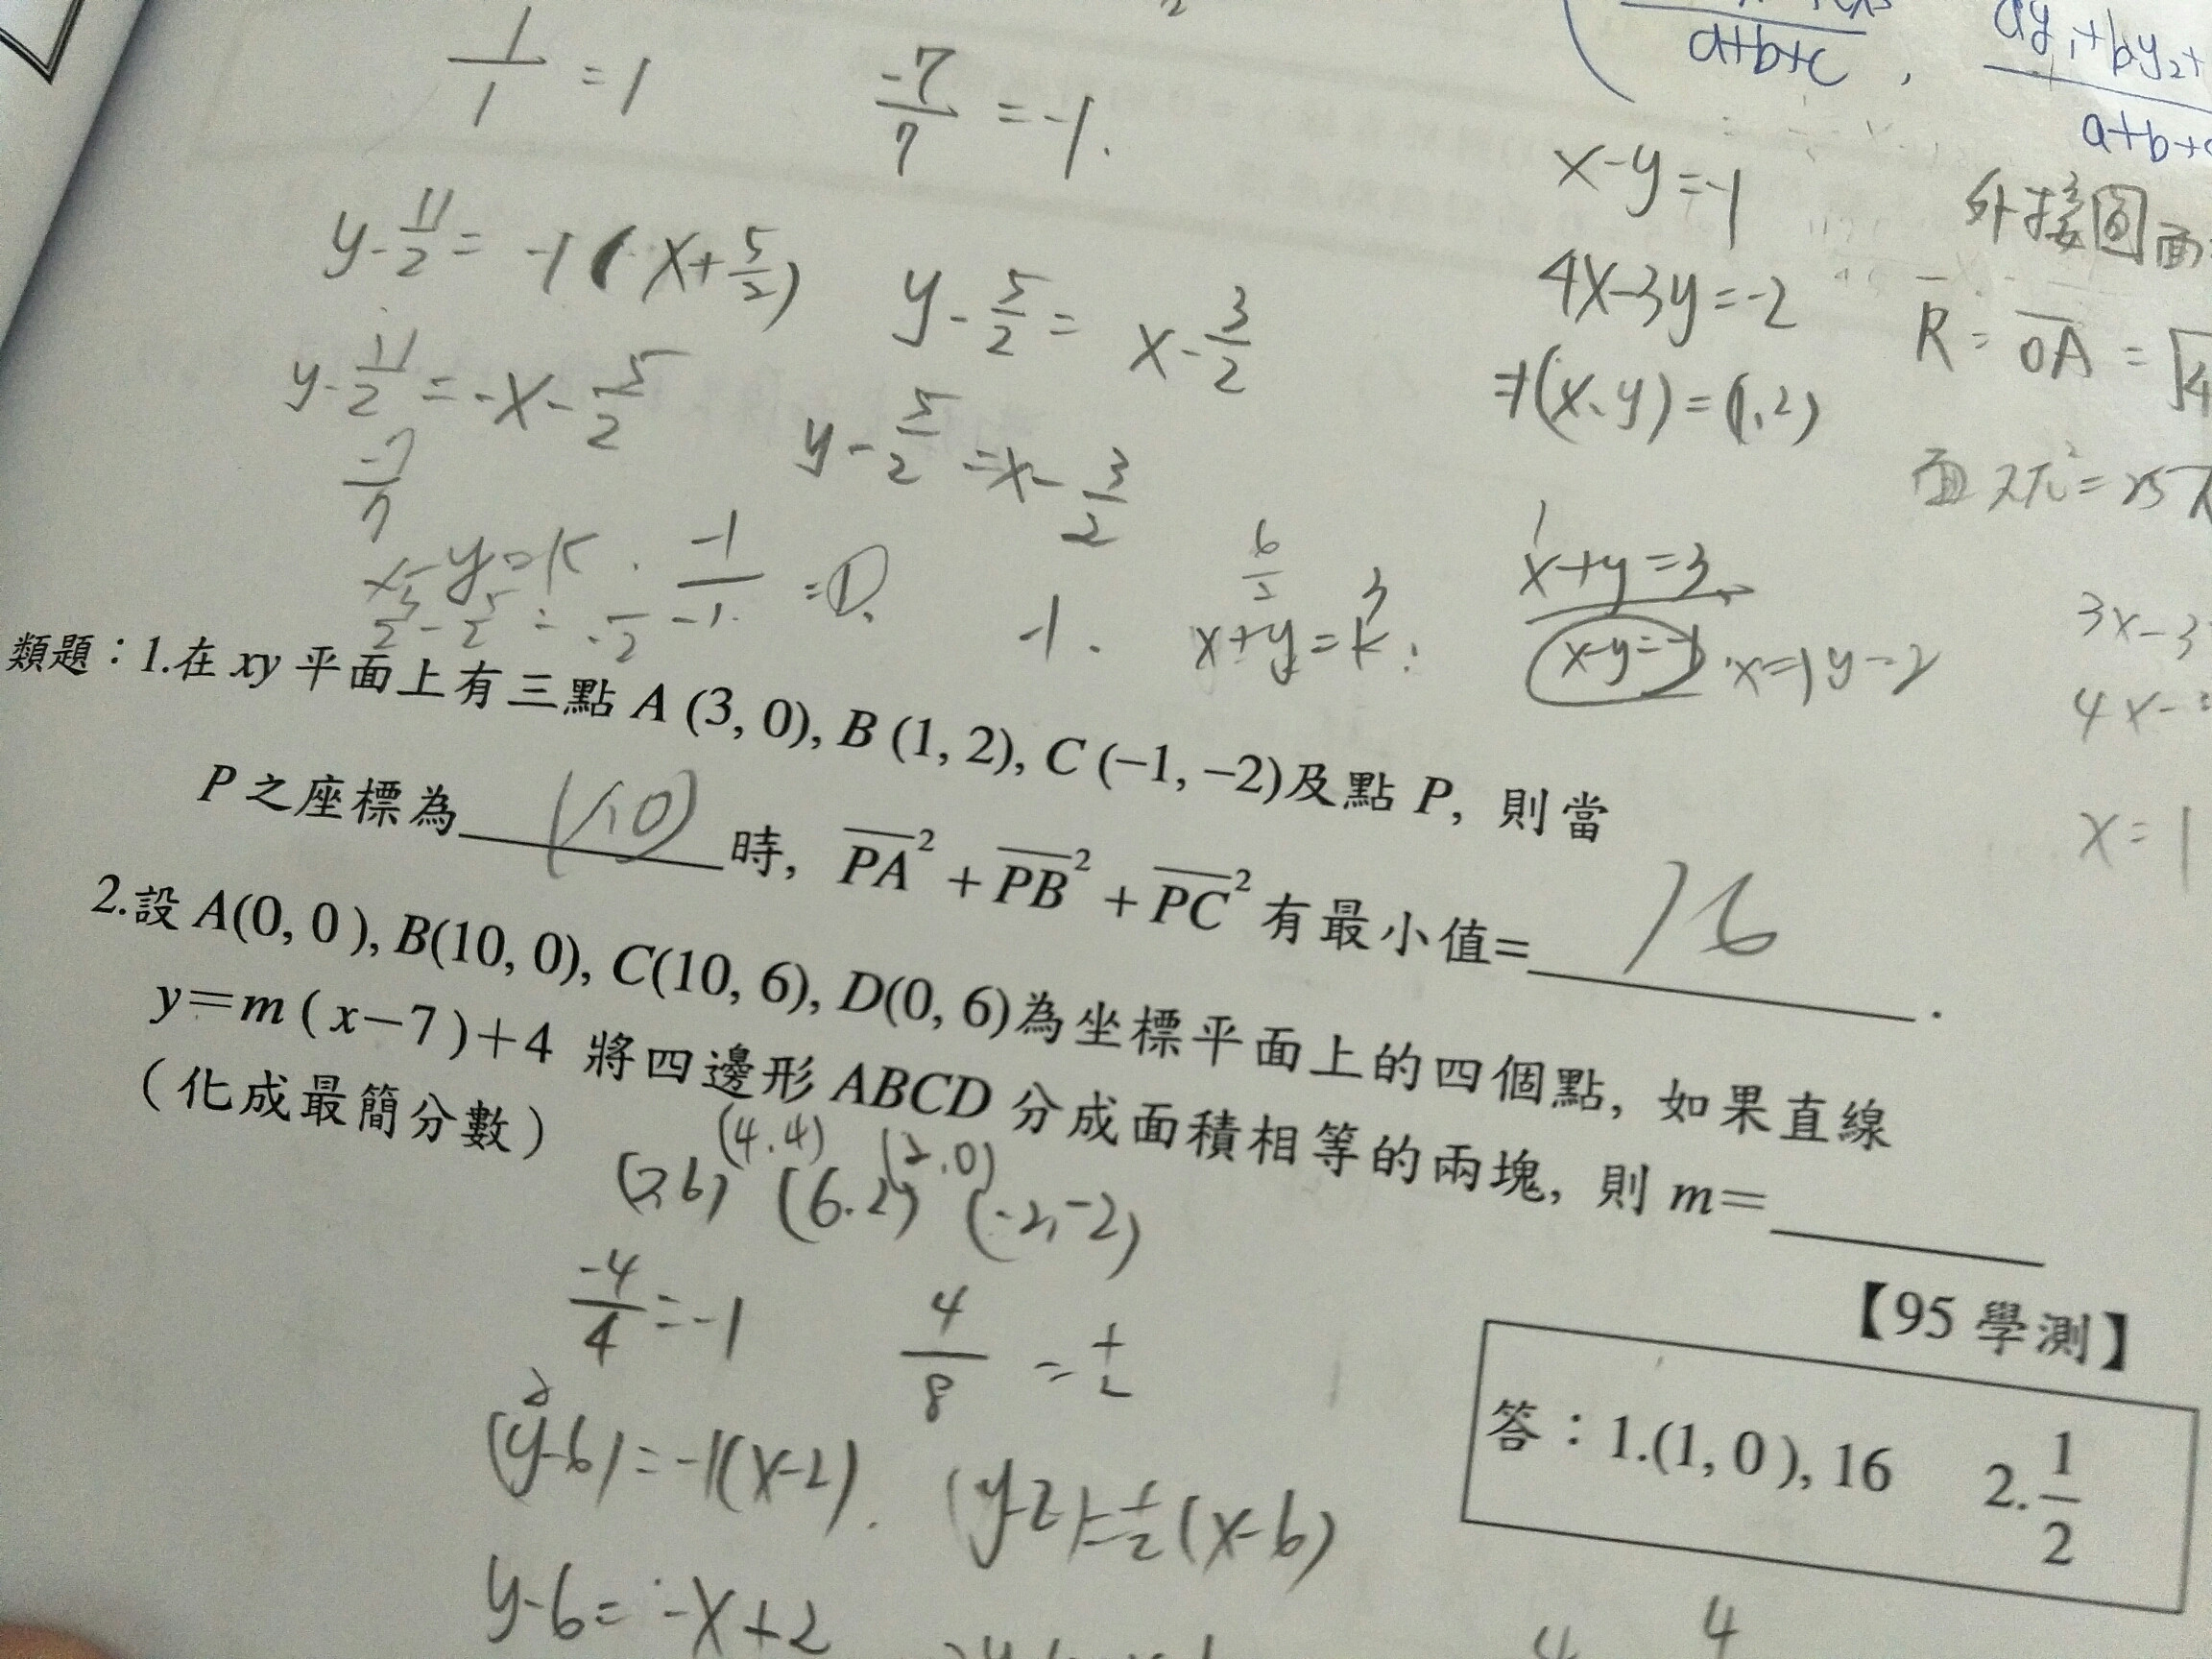 1/1 = 1
-7/7 = -1.
a+b+c ,
a+b+
x-y=-1
外接圓面
y-11/2= -1(x+5/2)
y-5/2= x-3/2
4x-3y=-2
R = OA =
y-11/2=-x-5/2
y-5/2=x-3/2
⇒(x、y)=(1,2)
-7/7
x+y=3
x+y=k
x-y=-1 x=1 y=2
3x-3
4x-
類題：1.在 xy 平面上有三點 A (3, 0), B (1, 2), C (−1, −2)及點 P, 則當
P 之座標為 (1,0) 時, PA² + PB² + PC² 有最小值= 16 .
x=1
2.設 A(0, 0 ), B(10, 0), C(10, 6), D(0, 6)為坐標平面上的四個點, 如果直線
y＝m ( x−7 )＋4 將四邊形 ABCD 分成面積相等的兩塊, 則 m＝
（化成最簡分數）
【95 學測】
(4.4) (2.0)
(2,6) (6.2) (-2,-2)
-4/4=-1
4/8 = 1/2
(y-6)=-1(x-2).
(y-2)=1/2(x-6)
答：1.(1, 0 ), 16 2. 1/2
y-6= -x+2
4 4